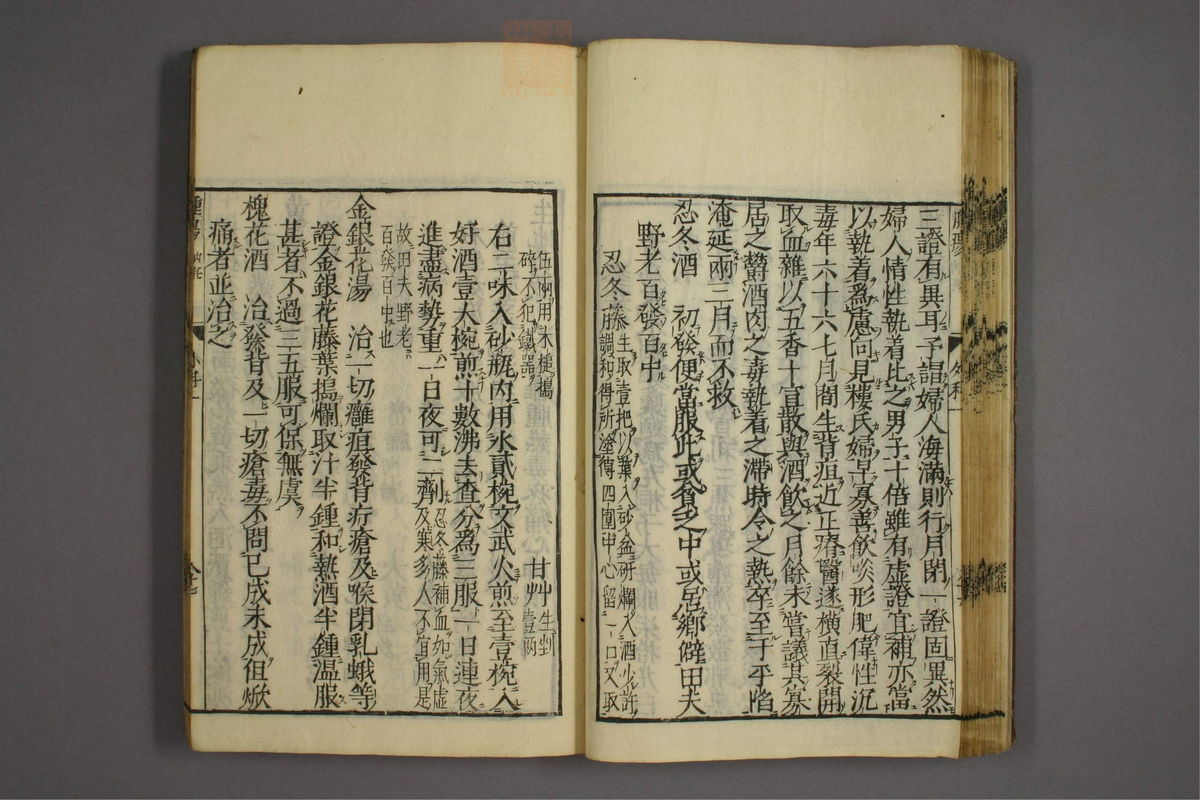 三證有異耳予謂婦人海滿則行月閉一證固異然
婦人情性執着比之男子十倍雖有虛證宜補亦當
以執着為慮向見樓氏婦早寡善飲啖形肥偉性沉
毒年六十六七月間生背疽近正瘠醫遂橫直裂開
取血雜以五香十宣散與酒飲之月餘未嘗議其寡
居之欝酒肉之毒執着之滯時令之熱卒至于平陷
淹延兩三月而不救
忍冬酒　初發便當服此或貧乏中或居鄉僻田夫
野老百發百中
忍冬藤生取壹把以葉入砂盆研爛入酒少許
調和得所塗傅四圍中心留一口又取
伍兩用木槌搗
碎不犯鐵器
甘艸生剉
壹兩
右二味入砂瓶內用水貳椀文武火煎至壹椀入
好酒壹大椀煎十數沸去查分為三服一日連夜
進盡病勢重一日夜可二劑忍冬藤補血如氣虛
及寒多人不宜用是
故田夫野老
百發百中也
金銀花湯　治一切癰疽發背疔瘡及喉閉乳蛾等
證金銀花藤葉搗爛取汁半鍾和熱酒半鍾温服
甚者不過三五服可保無虞
槐花酒　治發背及一切瘡毒不問已成未成但焮
痛者並治之